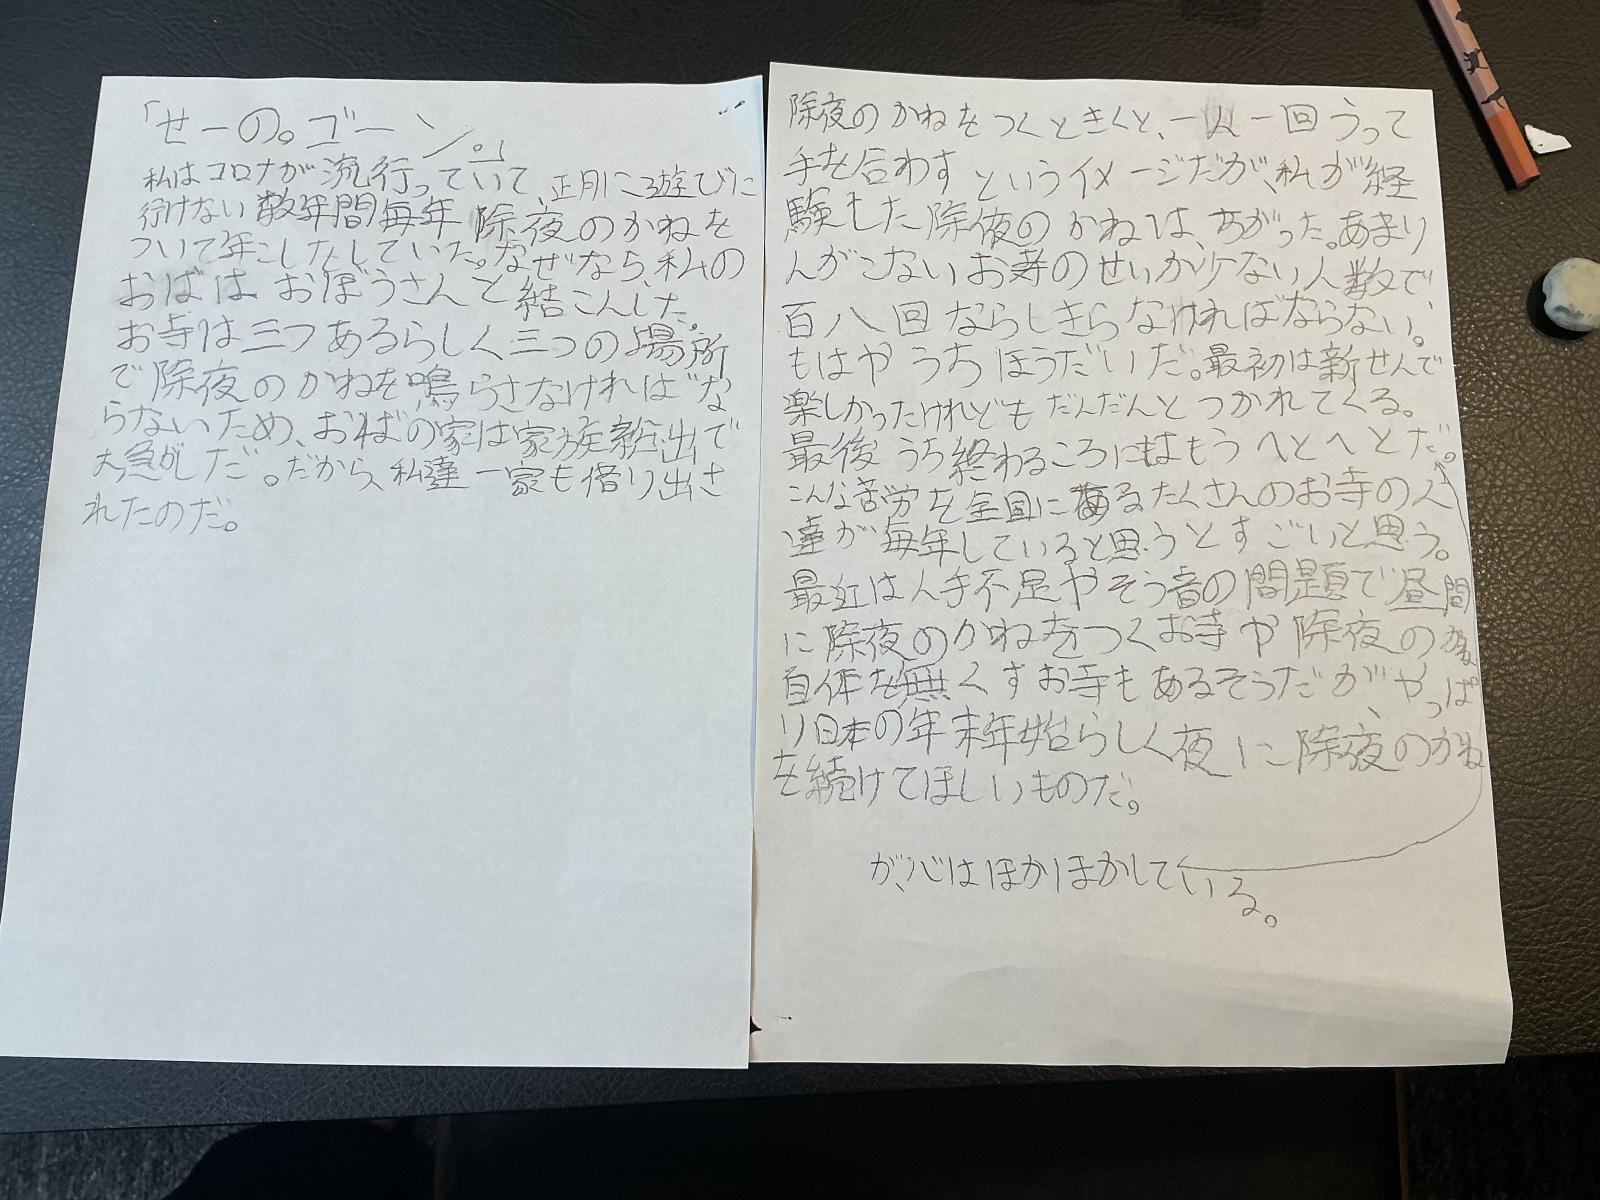 「せーの。ゴーン。」
私はコロナが流行っていて、正月に遊びに
行けない数年間毎年除夜のかねを
ついて年こしたしていた。なぜなら、私の
おばはおぼうさんと結こんした。
お寺は三つあるらしく三つの場所
で除夜のかねを鳴らさなければな
らないため、おばの家は家族総出で
大急がしだ。だから、私達一家も借り出さ
れたのだ。
除夜のかねをつくときくと、一人一回うって
手を合わすというイメージだが、私が経
験もした除夜のかねは、ちがった。あまり
人がこないお寺のせいか少ない人数で、
百八回ならしきらなければならない。
もはやうちほうだいだ。最初は新せんで
楽しかったけれどもだんだんとつかれてくる。
最後うち終わるころにはもうへとへとだ。
こんな苦労を全国にあるたくさんのお寺の人
達が毎年していると思うとすごいと思う。
最近は人手不足やそう音の問題で昼間
に除夜のかねをつくお寺や除夜のかね
自体を無くすお寺もあるそうだが、やっぱ
り日本の年末年始らしく夜に除夜のかね
を続けてほしいものだ。
が、心はほかほかしている。